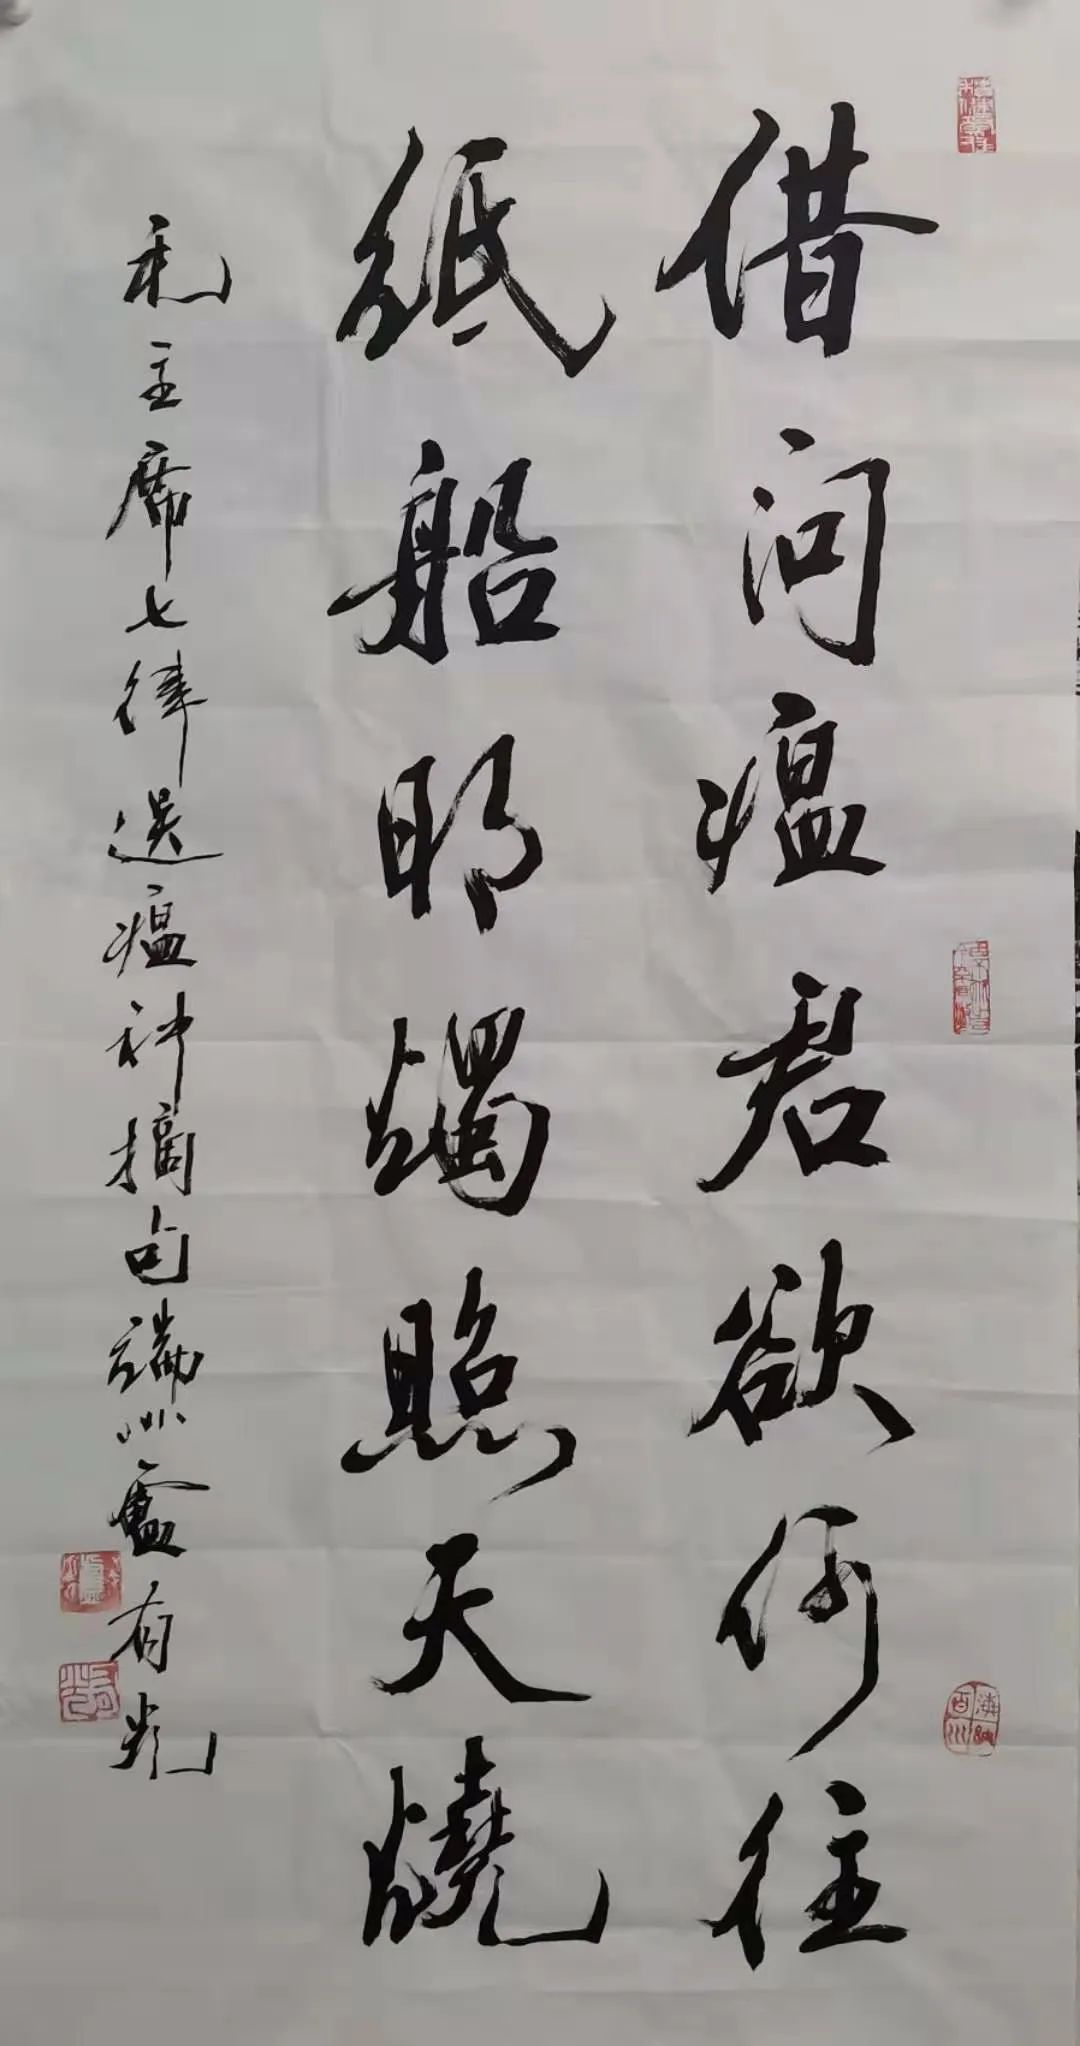 借问瘟君欲何往
纸船明烛照天烧
毛主席七律送瘟神摘句端州卢有光
海纳百川